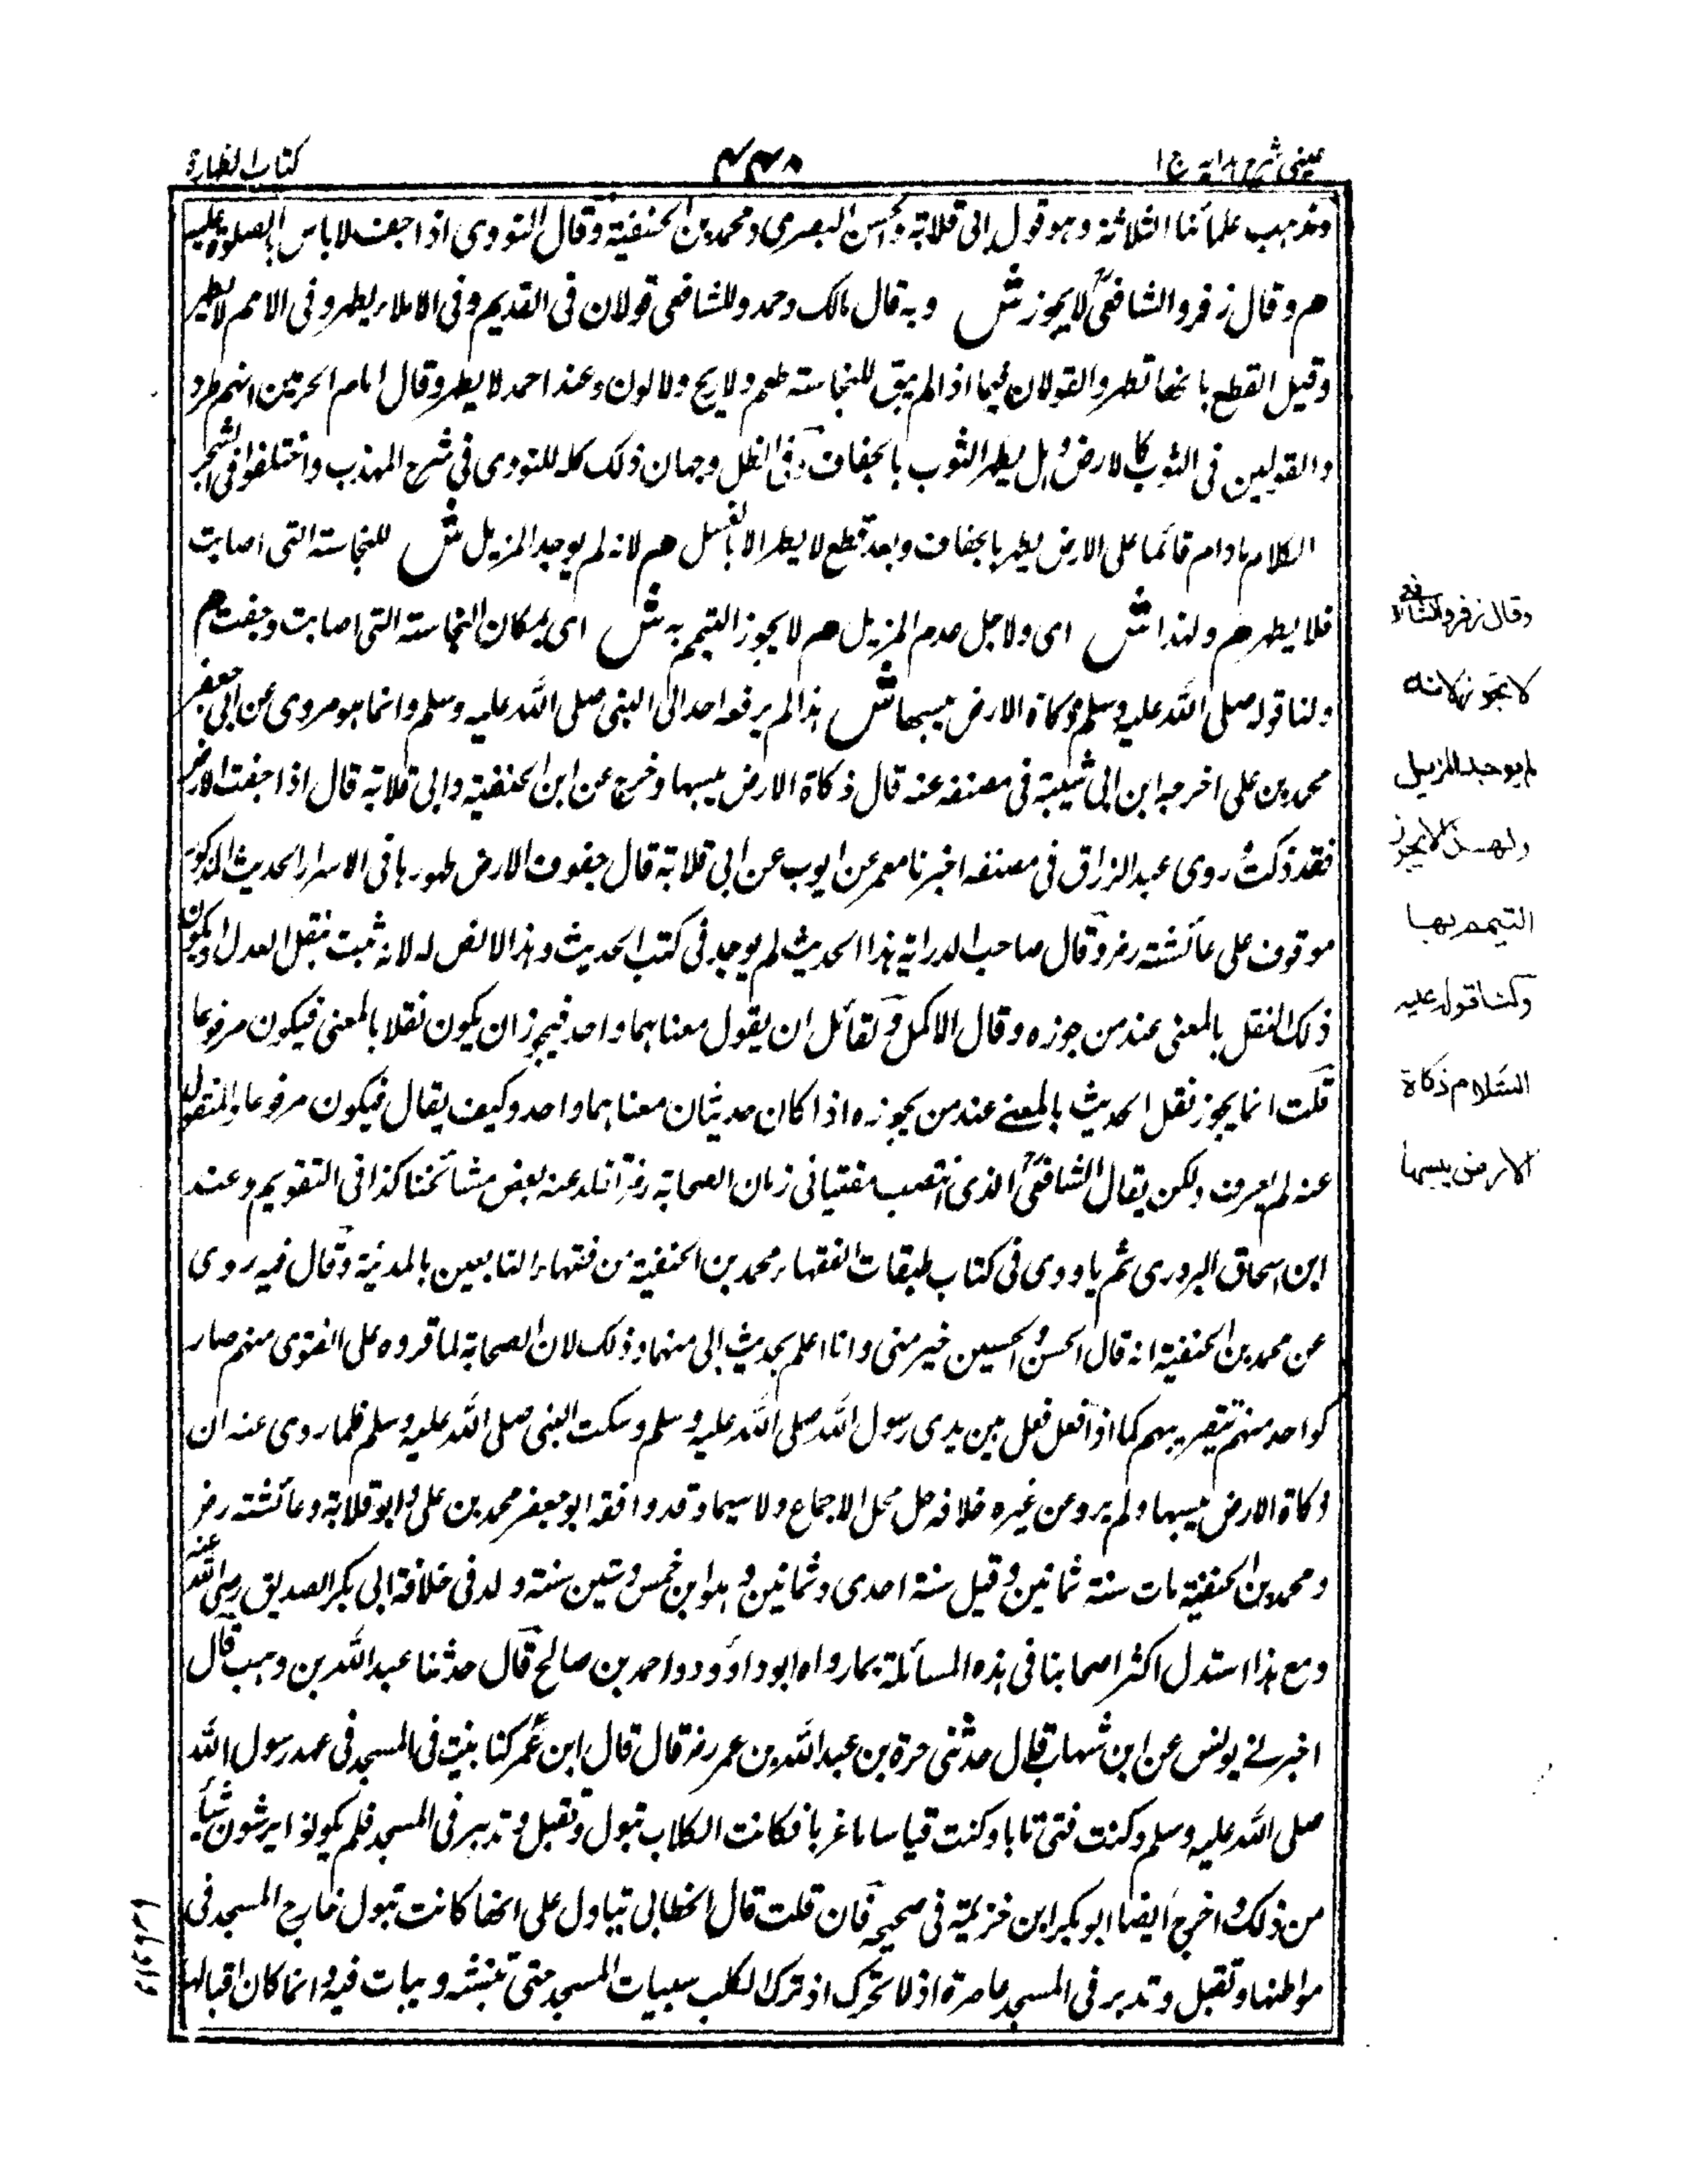 عینی شرح هدایه ج ۱
۴۴۰
کتاب الطهارة
ومذهب علمائنا الثلاثة وهو قول ابی قلابة والحسن البصری ومحمد بن الحنفیة وقال النووی اذا جفت لا باس بالصلوة علیه
هم وقال زفر والشافعیؒ لا یجوز ش وبه قال مالک وحمد وللشافعی قولان فی القدیم وفی الاملاء یطهر وفی الامم لا یطهر
وقیل القطع بانها تطهر والقولان فیما اذا لم یبق للنجاسة طعم ولا ریح ولا لون وعند احمد لا یطهر وقال امام الحرمین انهم طرد
والقولین فی الثوب کالارض وبل یطهر الثوب بالجفاف وفی الظل وجهان ذلک کله للنووی فی شرح المهذب واختلفوا فی الشجر
الکلام مادام قائما علی الارض یطهر بالجفاف وبعد قطع لا یطهر الا بالغسل هم لانه لم یوجد المزیل ش للنجاسة التی اصابت
فلا یطهر هم ولهذا ش ای ولاجل عدم المزیل هم لا یجوز التیمم به ش ای بمکان النجاسة التی اصابت وجفت هم
ولنا قوله صلی الله علیه وسلم ذکاة الارض یبسها ش هذا لم یرفعه احد الی النبی صلی الله علیه وسلم وانما هو مروی عن ابی جعفر
محمد بن علی اخرجه ابن ابی شیبة فی مصنفه عنه قال ذکاة الارض یبسها وخرج عن ابن الحنفیة وابی قلابة قال اذا جفت الارض
فقد ذکت روی عبد الرزاق فی مصنفه اخبرنا معمر عن ایوب عن ابی قلابة قال جفوف الارض طهورها فی الاسرار الحدیث المذکور
موقوف علی عائشة رض وقال صاحب الدرایة هذا الحدیث لم یوجد فی کتب الحدیث وهذا لا نص له لانه ثبت بنقل العدل او یکون
ذلک النقل بالمعنی عند من جوزه وقال الاکمل ولقائل ان یقول معناهما واحد فیجوز ان یکون نقلا بالمعنی فیکون مرفوعا
قلت انما یجوز نقل الحدیث بالمعنے عند من یجوزه اذا کان حدیثان معناهما واحد وکیف یقال فیکون مرفوعا والمنقول
عنه لم یعرف ولکن یقال الشافعیؒ الذی انتصب مفتیا فی زمان الصحابة رض قلد عنه بعض مشائخنا کذا فی التقویم وعند
ابن اسحاق ثم فی کتاب طبقات الفقهاء محمد بن الحنفیة من فقهاء التابعین بالمدینة وقال فیه روی
عن محمد بن الحنفیة انه قال الحسن والحسین خیر منی وانا اعلم بحدیث ابی منهما وذلک لان الصحابة لما قروه علی الفتوی منهم صار
کواحد منهم بتقریرهم کما اذا فعل فعل بین یدی رسول الله صلی الله علیه وسلم وسکت النبی صلی الله علیه وسلم فلما روی عنه ان
ذکاة الارض یبسها ولم یرو عن غیره خلافه حل محل الاجماع ولا سیما وقد وافقه ابو جعفر محمد بن علی وابو قلابة وعائشة رض
ومحمد بن الحنفیة مات سنة ثمانین وقیل سنة احدی وثمانین وهو ابن خمس وستین سنة ولد فی خلافة ابی بکر الصدیق رضی الله عنه
ومع هذا استدل اکثر اصحابنا فی هذه المسائلة بما رواه ابو داؤد واحمد بن صالح قال حدثنا عبد الله بن وهب قال
اخبرنے یونس عن ابن شهاب قال حدثنی حمزة بن عبد الله بن عمر رض قال قال ابن عمرؓ کنا بنیت فی المسجد فی عهد رسول الله
صلی الله علیه وسلم وکنت فتی شابا وکنت عزبا فکانت الکلاب تبول وتقبل وتدبر فی المسجد فلم یکونوا یرشون شیأ
من ذلک واخرج ایضا ابو بکر ابن خزیمة فی صحیحه فان قلت قال الخطابی یتاول علی انها کانت تبول خارج المسجد فی
مواطنها وتقبل وتدبر فی المسجد عابرة اذ لا تترک الکلب المسجد حتی وتبات فیه وانما کان اقبالها
وقال زفر والشافعی
لا یجوز لانه
لم یوجد المزیل
ولهذا لا یجوز
التیمم بها
ولنا قوله علیه
السلام ذکاة
الارض یبسها